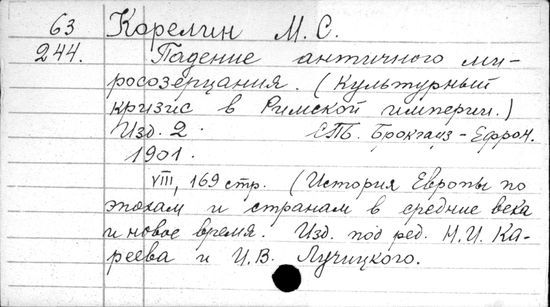 63 Корелин М. С.
244. Падение античного ми-
росозерцания. (Культурный
кризис в Римской империи.)
Изд. 2. СПб. Брокгауз-Ефрон.
1901.
VIII, 169 стр. (История Европы по
эпохам и странам в средние века
и новое время. Изд. под ред. Н. И. Ка-
реева и И. В. Лучицкого.